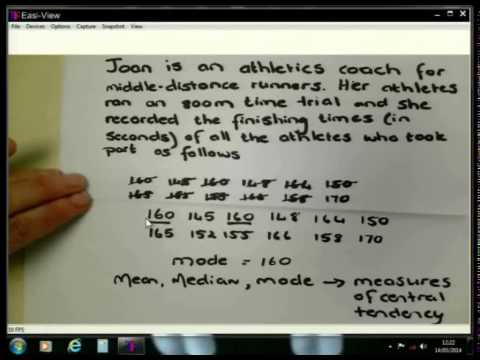 Easi-View
File Devices Options Capture Snapshot View
Joan is an athletics coach for
middle-distance runners. Her athletes
ran an 800m time trial and she
recorded the finishing times (in
seconds) of all the athletes who took
part as follows
160 145 160 148 164 150
165 155 158 170
160 145 160 148 164 150
165 152 155 166 158 170
mode = 160
Mean, Median, mode → measures
of central
tendency
12:22
14/05/2014